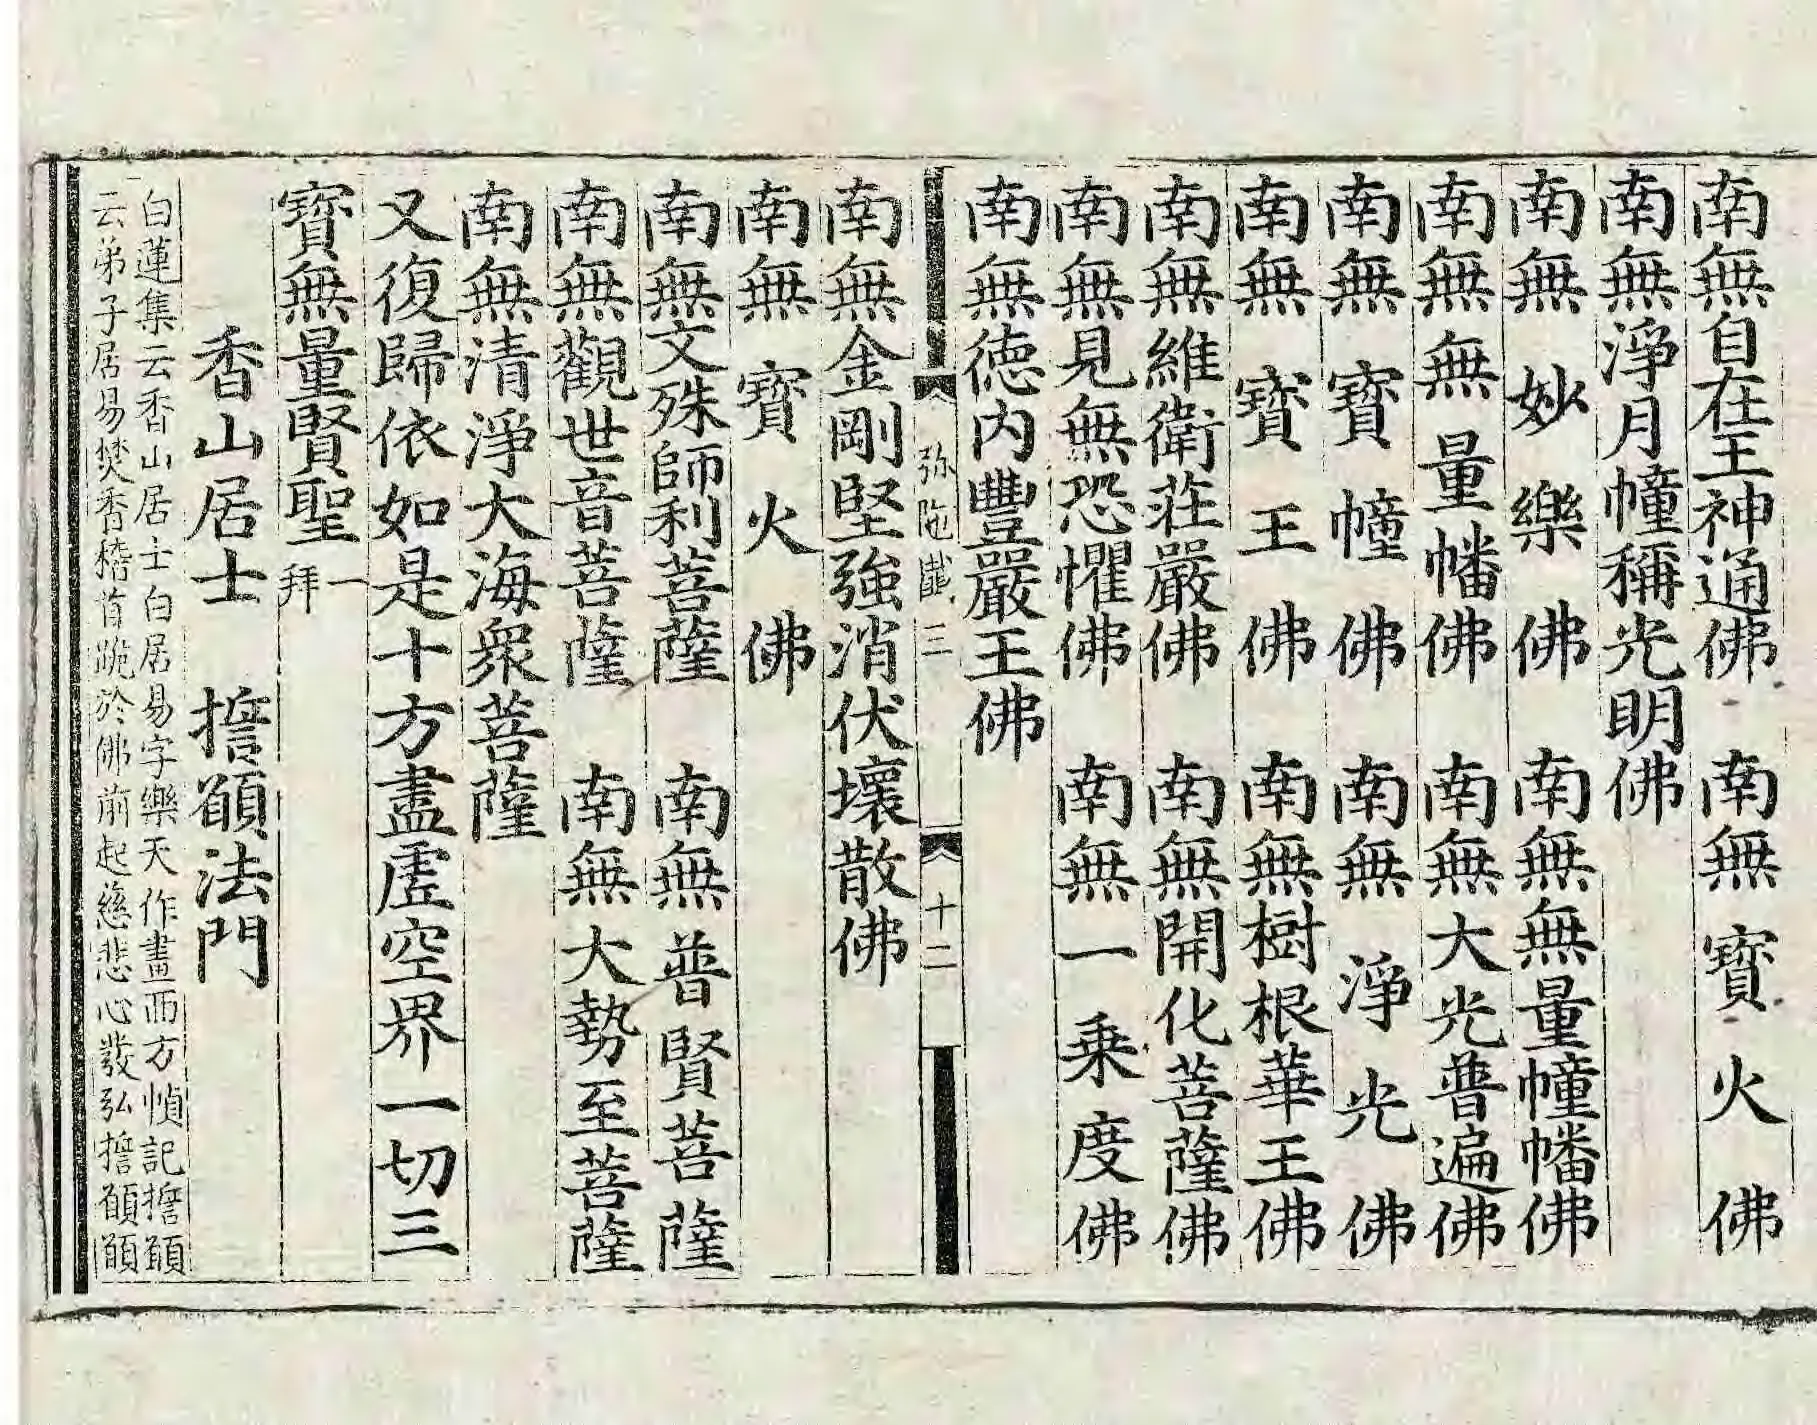 南無自在王神通佛　南無寶火佛
南無淨月幢稱光明佛
南無妙樂佛　南無無量幢幡佛
南無無量幡佛　南無大光普遍佛
南無寶幢佛　南無淨光佛
南無寶王佛　南無樹根華王佛
南無維衛莊嚴佛　南無開化菩薩佛
南無見無恐懼佛　南無一乗度佛
南無德內豐嚴王佛
弥陁懴二　十二
南無金剛堅強消伏壞散佛
南無寶火佛
南無文殊師利菩薩　南無普賢菩薩
南無觀世音菩薩　南無大勢至菩薩
南無清淨大海衆菩薩
又復歸依如是十方盡虛空界一切三
寶無量賢聖一拜
香山居士　㨾願法門
白蓮集云香山居士白居易字樂天作畫西方幀記㨾願
云弟子居易焚香稽首跪於佛前起慈悲心發弘㨾願願